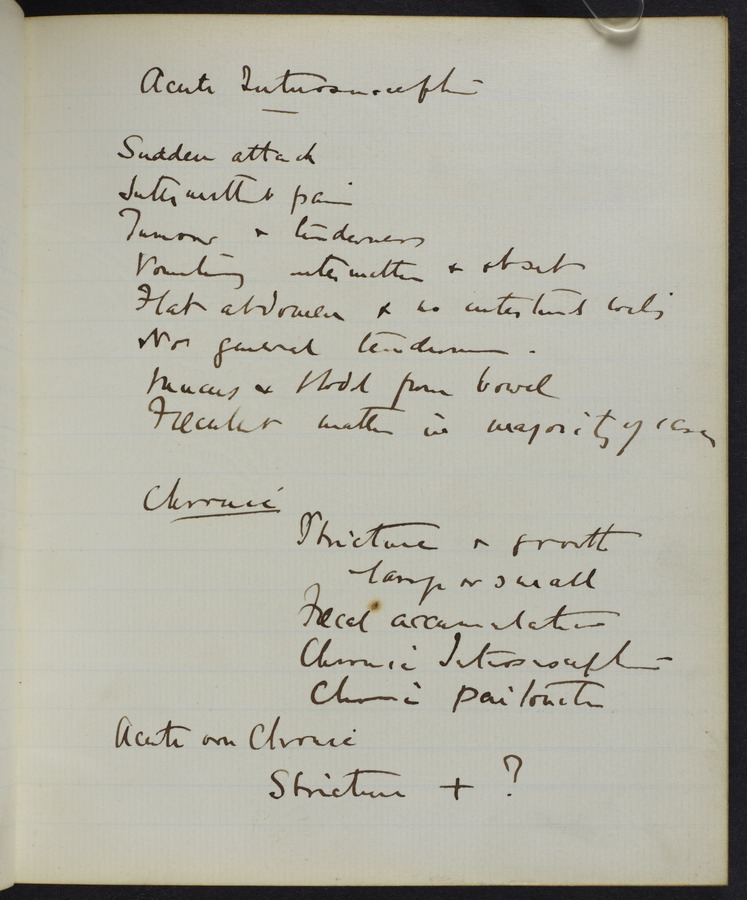 Acute Intussusception
Sudden attack
Intermittent pain
Tumour & tenderness
Vomiting intermittent & absent
Flat abdomen & no intestinal coils
No general tenderness.
Mucus & blood from bowel
Fæculent matter in majority of cases
Chronic
Stricture & growth
large or small
Fæcal accumulation
Chronic Intussusception
Chronic peritonitis
Acute on Chronic
Stricture + ?